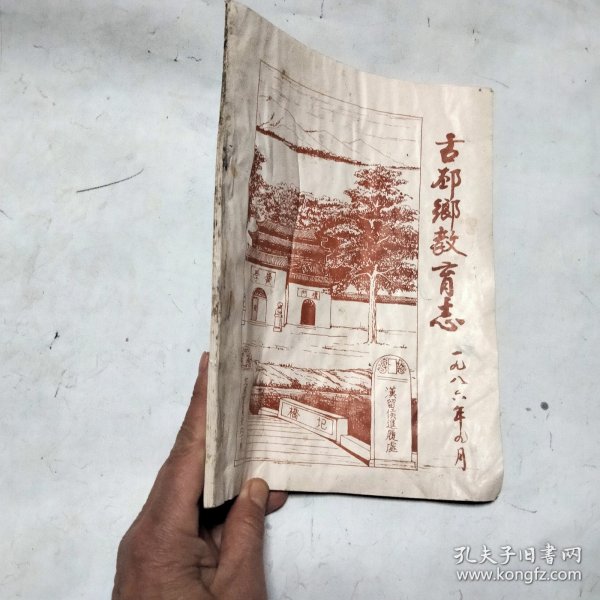 古邳鄉教育志
一九八六年九月
圯橋
漢留侯進履處
孔夫子旧书网
www.kongfz.com